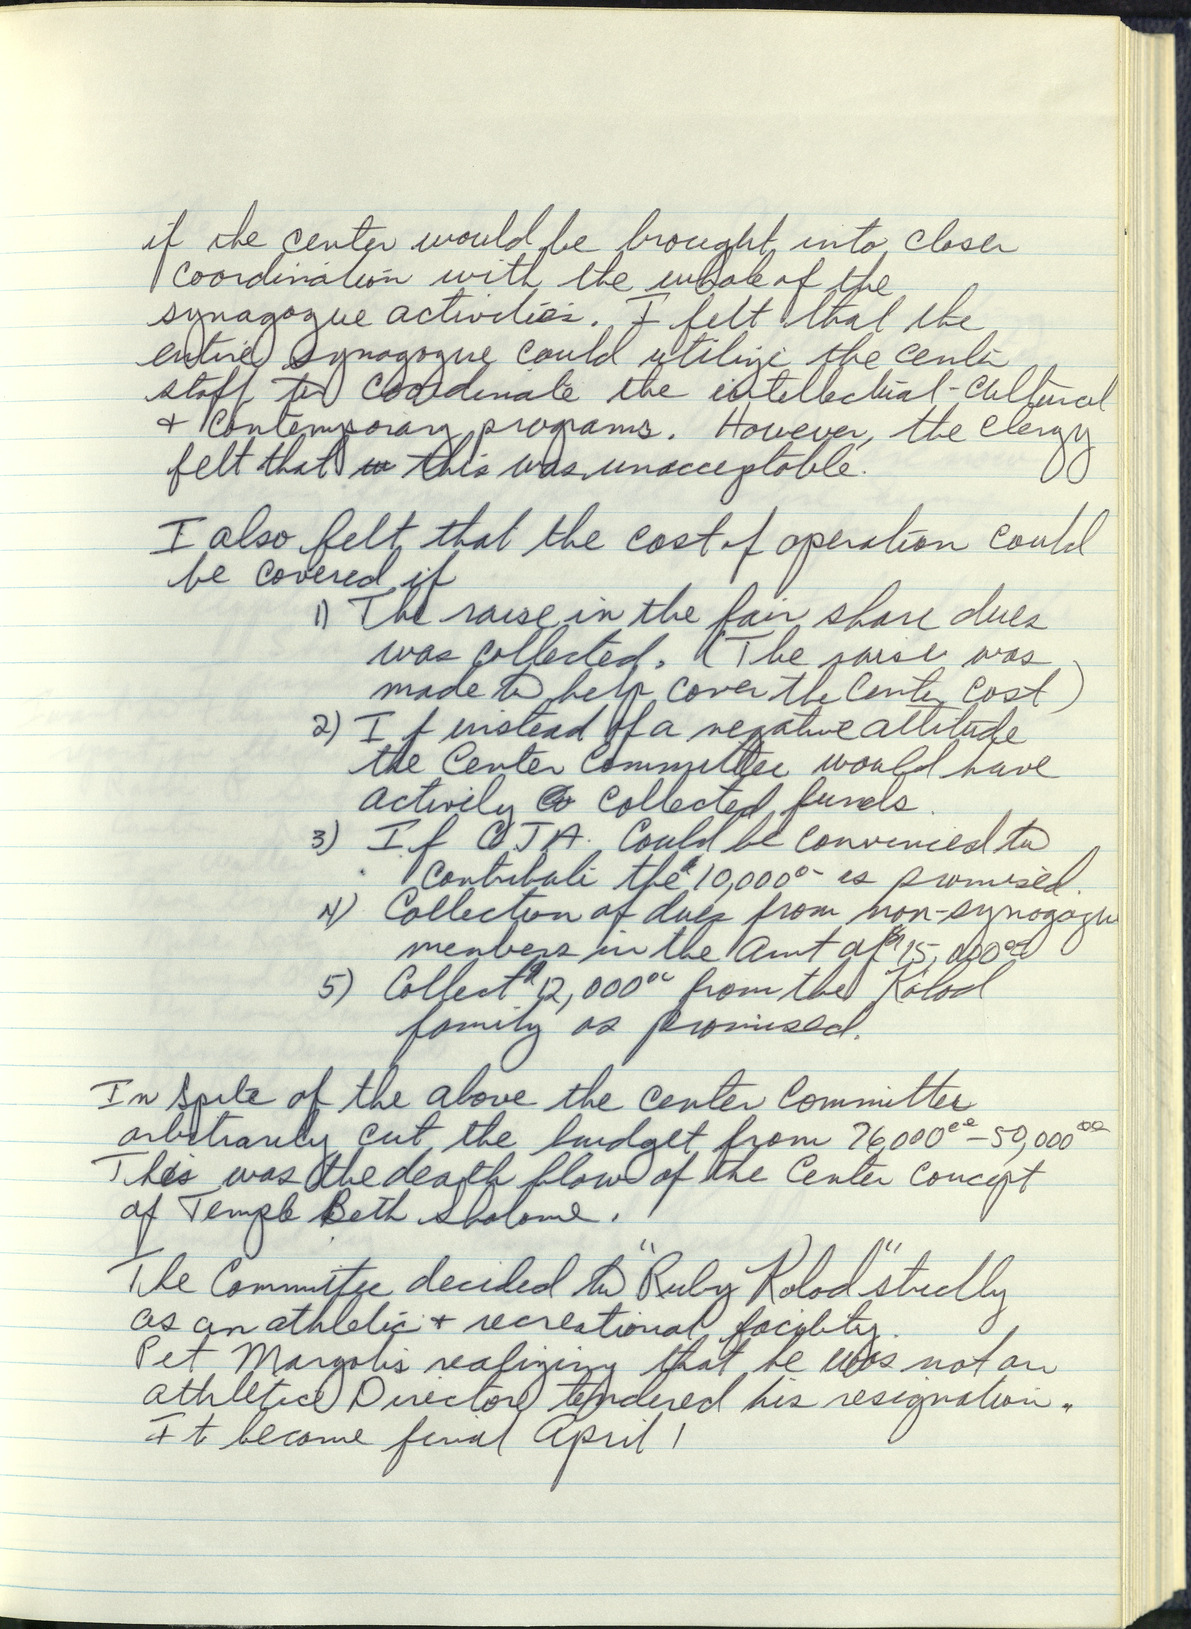 if the center would be brought into closer
coordination with the whole of the
synagogue activities. I felt that the
entire synagogue could utilize the center
staff to coordinate the intellectual-cultural
+ contemporary programs. However, the clergy
felt that this was unacceptable.
I also felt that the cost of operation could
be covered if
1) The raise in the fair share dues
was collected. (The raise was
made to help cover the Center cost)
2) If instead of a negative attitude
the Center Committee would have
activily collected funds.
3) If CJA. Could be convinced to
contribute the $10,000⁰⁰ as promised.
4) Collection of dues from non-synagogue
members in the amt of $15,000⁰⁰
5) Collect $12,000⁰⁰ from the Kolod
family as promised.
In spite of the above the center Committee
arbitrarily cut the budget from 76,000⁰⁰-50,000⁰⁰
This was the death blow of the Center concept
of Temple Beth Sholome.
The Committee decided to "Ruby Kolod" strictly
as an athletic + recreational facility.
Pet Margolis realizing that he was not an
athletice Director tendered his resignation.
It become final April 1